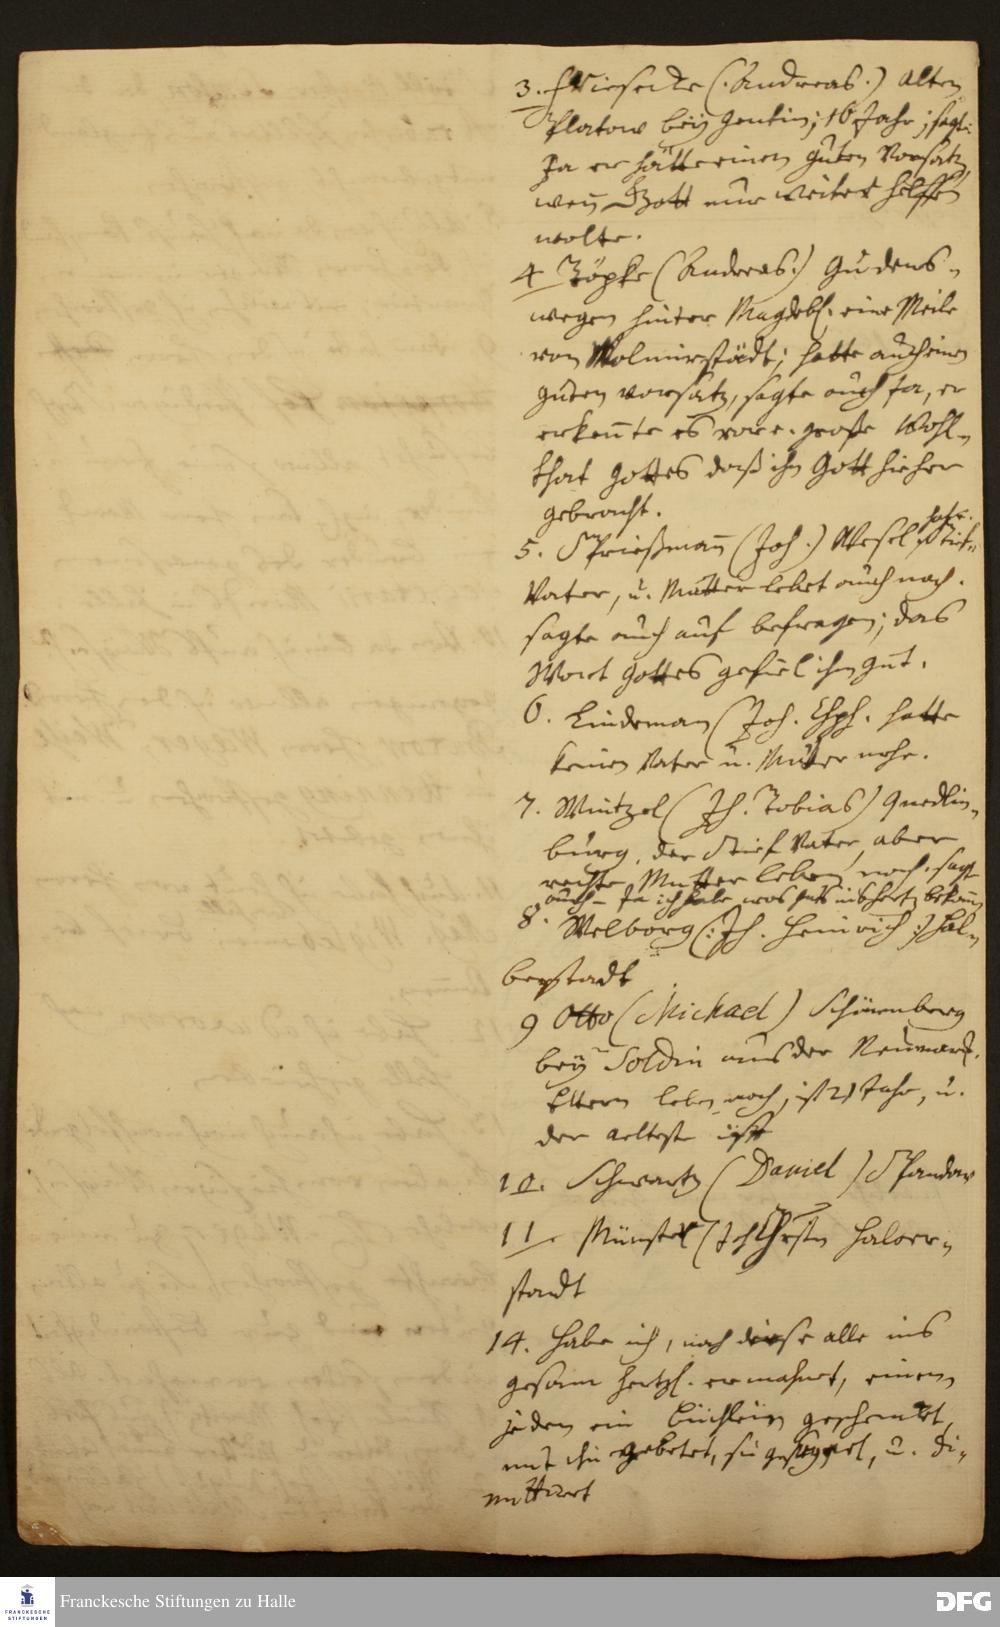 3. Friesecke (Andreas.) Alten
Platow bey Gentin; 16 Jahr; sagt:
Ja er hätte einen guten Vorsatz,
wen̄ Gott nur weiter helffen
wolte.
4 Töpke (Andreas.) Gudens-
wegen hinter Magdebl. eine Meile
von Wolmirstädt; hatte auch einen
guten vorsatz, sagte auch Ja, er
erken̄te es vor e. große Wohl-
that Gottes daß ihn Gott hieher
gebracht.
5. Prießman̄ (Joh.) Wesel hatt. Stief-
Vater, u. Mutter lebet auch noch.
sagte auch auf befragen; das
Wort Gottes gefiel ihm gut.
6. Lindeman (Joh. Chph. hatte
keinen Vater u. Mutter mehr.
7. Wintzel (Jh. Tobias) Quedlin-
burg, der Stief Vater, aber
rechte Mutter leben noch. sagt
auch - Ja ich habe was guts ins Hertz bekom̄
8. Welborg (: Jh. Heinrich :) Hal-
berstadt
9 Otto (Michael) Schönenberg
bey Soldin aus der Neumark.
Eltern leben noch, ist 21 Jahr, u.
der aelteste ist
10. Schwartz (Daniel) Spandow
11. Münster (Joh Chrstn Halber-
stadt
14. Habe ich, nach diese alle ins
gesam hertzl. ermahnet, einem
jeden ein büchlein geschenket,
mit ihn gebetet, sie gesegnet, u. di-
mittiret
Franckesche Stiftungen zu Halle
FRANCKESCHE
STIFTUNGEN
DFG